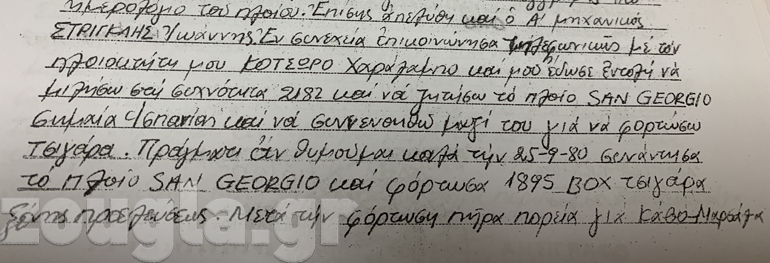 ημερολόγιο του πλοίου. Επίσης απελύθη και ο Α' μηχανικός
ΣΤΡΙΓΚΛΗΣ Ιωάννης. Εν συνεχεία επικοινώνησα τηλεφωνικώς με τον
πλοιοκτήτη μου ΚΟΤΣΩΡΟ Χαράλαμπο και μου έδωσε εντολή να
μιλήσω στη συχνότητα 2182 και να ζητήσω το πλοίο SAN GEORGIO
σημαία Ισπανίας και να συνεννοηθώ μαζί του για να φορτώσω
τσιγάρα. Πράγματι εάν θυμούμαι καλά την 25-9-80 συνάντησα
το πλοίο SAN GEORGIO και φόρτωσα 1895 BOX τσιγάρα
ξένης προελεύσεως. Μετά την φόρτωση πήρα πορεία για Κάβο-Μαρσάλα
zougla.gr